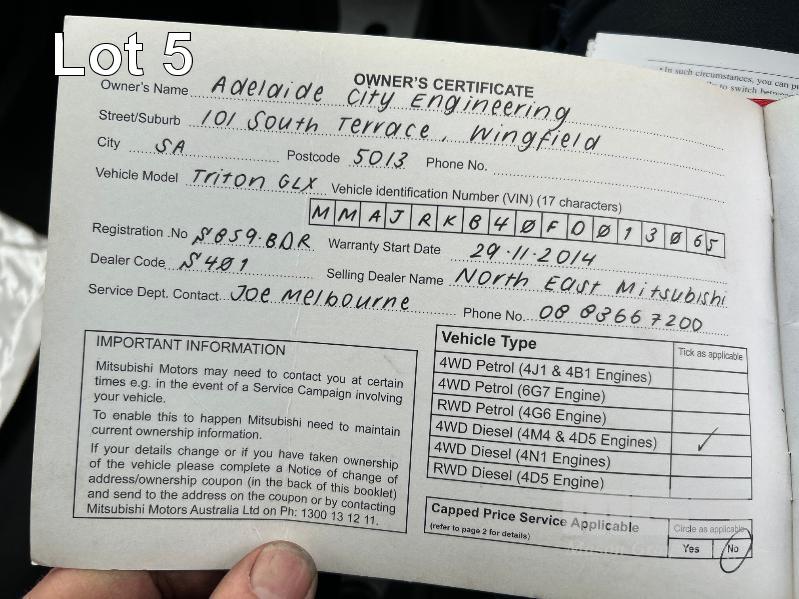 Lot 5
OWNER'S CERTIFICATE
Owner's Name Adelaide City Engineering
Street/Suburb 101 South Terrace, Wingfield
City SA Postcode 5013 Phone No.
Vehicle Model Triton GLX Vehicle identification Number (VIN) (17 characters)
MMAJRKB40F0013065
Registration .No S859.BDR Warranty Start Date 29.11.2014
Dealer Code S401 Selling Dealer Name North East Mitsubishi
Service Dept. Contact Joe Melbourne Phone No. 08 8366 7200
IMPORTANT INFORMATION
Mitsubishi Motors may need to contact you at certain
times e.g. in the event of a Service Campaign involving
your vehicle.
To enable this to happen Mitsubishi need to maintain
current ownership information.
If your details change or if you have taken ownership
of the vehicle please complete a Notice of change of
address/ownership coupon (in the back of this booklet)
and send to the address on the coupon or by contacting
Mitsubishi Motors Australia Ltd on Ph: 1300 13 12 11.
Vehicle Type Tick as applicable
4WD Petrol (4J1 & 4B1 Engines)
4WD Petrol (6G7 Engine)
RWD Petrol (4G6 Engine)
4WD Diesel (4M4 & 4D5 Engines) ✓
4WD Diesel (4N1 Engines)
RWD Diesel (4D5 Engine)
Capped Price Service Applicable Circle as applicable
(refer to page 2 for details) Yes No
• In such circumstances, you can
to switch between